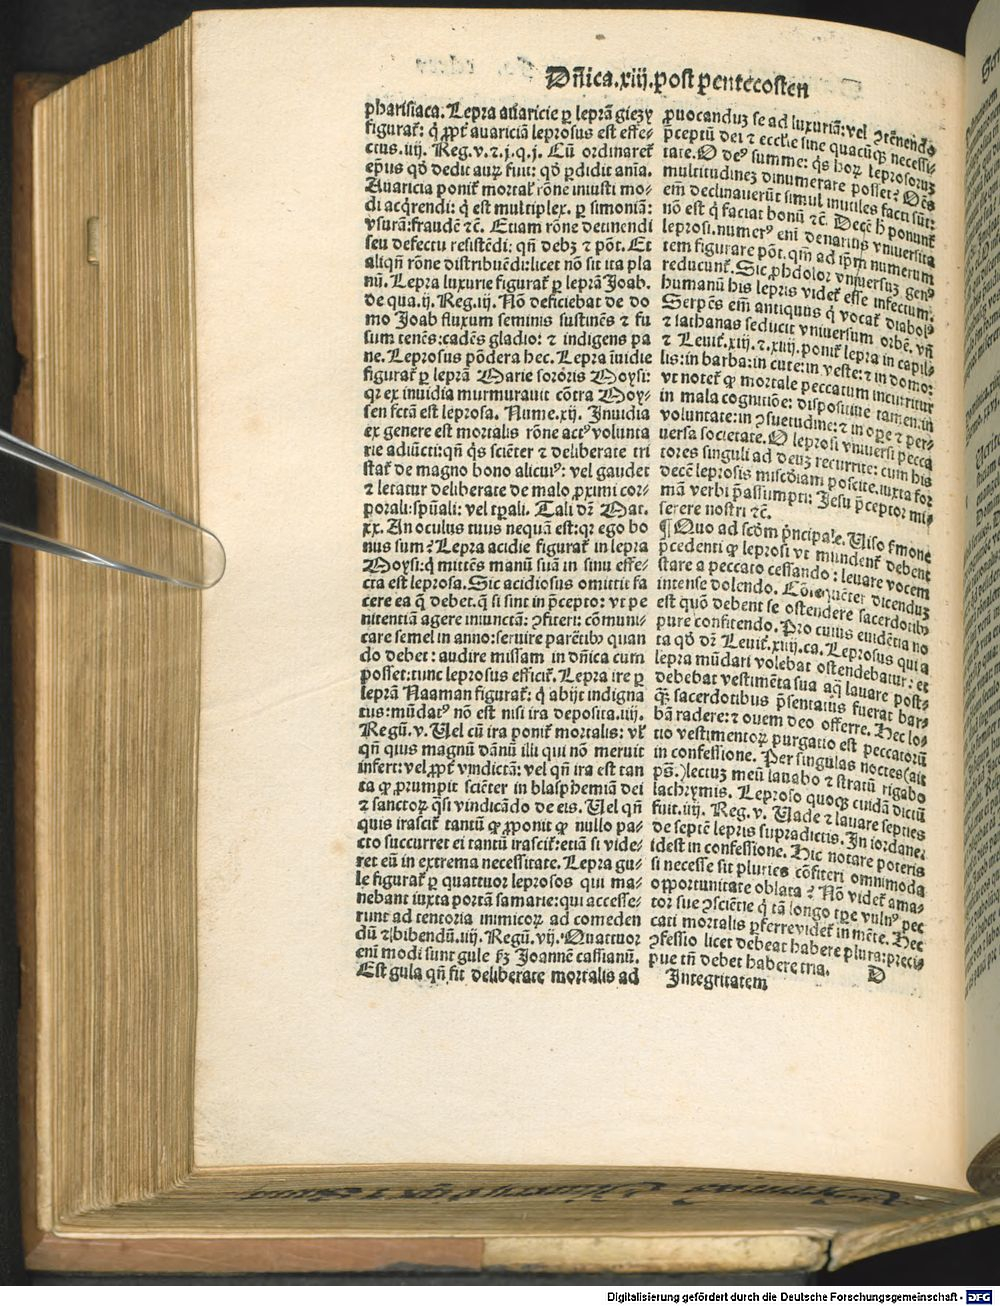 Dñica.xiij.post pentecosten
pharisiaca. Lepra auaricie ꝑ leprã giezy
figurat᷑: q̇ ꝓpt᷑ auariciã leprosus est effe⸗
ctus.iiij. Reg.v.⁊.j.q.j. Cũ ordinaret᷑
ep̃us qđ dedit auꝝ fuit: qđ ꝑdidit aĩa.
Auaricia ponit᷑ mortal᷑ rõne iniusti mo⸗
di acq̇rendi: q̇ est multiplex. ꝑ simoniã:
vsurã:fraudẽ ⁊c̃. Etiam rõne detinendi
seu defectu resistẽdi: qñ debꝫ ⁊ põt. Et
aliqñ rõne distribuẽdi:licet nõ sit ita pla
nũ. Lepra luxurie figurat᷑ ꝑ leprã Joab.
de qua.ij. Reg.iij. Nõ deficiebat de do
mo Joab fluxum seminis sustinẽs ⁊ fu
sum tenẽs:cadẽs gladio: ⁊ indigens pa
ne. Leprosus põdera hec. Lepra ĩuidie
figurat᷑ ꝑ leprã Marie sororis Moysi:
qr ex inuidia murmurauit cõtra Moy⸗
sen fctã est leprosa. Nume.xij. Inuidia
ex genere est mortalis rõne actꝰ volunta
rie adiũcti:qñ qs sciẽter ⁊ deliberate tri
stat᷑ de magno bono alicuiꝰ: vel gaudet
⁊ letatur deliberate de malo ꝓximi cor⸗
porali:spũali: vel tp̃ali. Tali dr̃ Mat.
xx. An oculus tuus nequã est:qr ego bo
nus sum? Lepra acidie figurat᷑ in lepra
Moysi:q̇ mittẽs manũ suã in sinu effe⸗
cta est leprosa. Sic acidiosus omittit fa
cere ea q̃ debet.q̃ si sint in p̃cepto: vt pe
nitentiã agere iniunctã: ꝯfiteri: cõmuni⸗
care semel in anno:seruire parẽtibꝰ quan
do debet: audire missam in dñica cum
posset:tunc leprosus efficit᷑. Lepra ire ꝑ
leprã Naaman figurat᷑: q̇ abijt indigna
tus:mũdatꝰ nõ est nisi ira deposita.iiij.
Regũ.v. Uel cũ ira ponit᷑ mortalis: vt᷑
qñ quis magnũ dãnũ illi qui nõ meruit
infert:vel ꝓpt᷑ vindictã: vel qñ ira est tan
ta ꝙ prumpit sciẽter in blasphemiã dei
⁊ sanctoꝝ q̃si vindicãdo de eis. Uel qñ
quis irascit᷑ tantũ ꝙ ꝓponit ꝙ nullo pa⸗
cto succurret ei tantũ irascit᷑:etiã si vide⸗
ret eũ in extrema necessitate. Lepra gu⸗
le figurat᷑ ꝑ quattuor leprosos qui ma⸗
nebant iuxta portã samarie:qui accesse⸗
runt ad tentoria inimicoꝝ ad comeden
dũ ⁊ bibendũ.iiij. Regũ.vij. Quattuor
eni modi sunt gule ẜꝫ Joannẽ cassianũ.
Est gula qñ fit deliberate mortalis ad
ꝓuocanduꝫ se ad luxuriã:vel ꝯtẽnendo
p̃ceptũ dei ⁊ ecclie sine quacũqꝫ necessi⸗
tate. O deꝰ summe: q̇s hoꝝ leprosoruꝫ
multitudineꝫ dinumerare posset? Oẽs
em̃ declinauerũt simul inutiles facti sũt:
nõ est q̇ faciat bonũ ⁊c̃. Decẽ h̃ ponunt᷑
leprosi.numerꝰ eni denarius vniuersita
tem figurare põt.qm̃ ad ip̃m numerum
reducunt᷑. Sic ꝓhdolor vniuersuꝫ genꝰ
humanũ his lepris videt᷑ esse infectum.
Serpẽs em̃ antiquus q̇ vocat᷑ diabolꝰ
⁊ sathanas seducit vniuersum orbẽ. vñ
⁊ Leuit᷑.xiij.⁊.xiiij.ponit᷑ lepra in capil⸗
lis:in barba:in cute:in veste:⁊ in domo:
vt notet᷑ ꝙ mortale peccatum incurritur
in mala cognitiõe: dispositiue tamen:in
voluntate:in ꝯsuetudine:⁊ in oꝑe ⁊ per⸗
uersa societate. O leprosi vniuersi pecca
tores singuli ad deuꝫ recurrite: cum his
decẽ leprosis misc̃diam poscite.iuxta for
mã verbi p̃assumpti: Jesu p̃ceptor mi⸗
serere nostri ⁊c̃.
¶ Quo ad scđm p̃ncipale. Uiso ẜmone
p̃cedenti ꝙ leprosi vt mundent᷑ debent
stare a peccato cessando: leuare vocem
intense dolendo. Cõsequẽter dicenduꝫ
est quõ debent se ostendere sacerdotibꝰ
pure confitendo. Pro cuius euidẽtia no
ta qđ dr̃ Leuit᷑.xiiij.ca. Leprosus qui a
lepra mũdari volebat ostendebatur: et
debebat vestimẽta sua aq̃ lauare post⸗
q̃ꝫ sacerdotibus p̃sentatus fuerat bar⸗
bã radere:⁊ ouem deo offerre. Hec lo⸗
tio vestimentoꝝ purgatio est peccatorũ
in confessione. Per singulas noctes(ait
ps̃.)lectuꝫ meũ lauabo ⁊ stratũ rigabo
lachrymis. Leproso quoqꝫ cuidã dictũ
fuit.iiij. Reg.v. Uade ⁊ lauare septies
de septẽ lepris supradictis. In iordane:
idest in confessione. Hic notare poteris
si necesse sit pluries cõfiteri omnimoda
oꝑportunitate oblata? Nõ videt᷑ ama⸗
tor sue ꝯsciẽtie q̇ tã longo tp̃e vulnꝰ pec
cati mortalis ꝑferre videt᷑ in mẽte. Hec
ꝯfessio licet debeat habere plura:preci⸗
pue tñ debet habere tria.
D
Integritatem
Digitalisierung gefördert durch die Deutsche Forschungsgemeinschaft - DFG